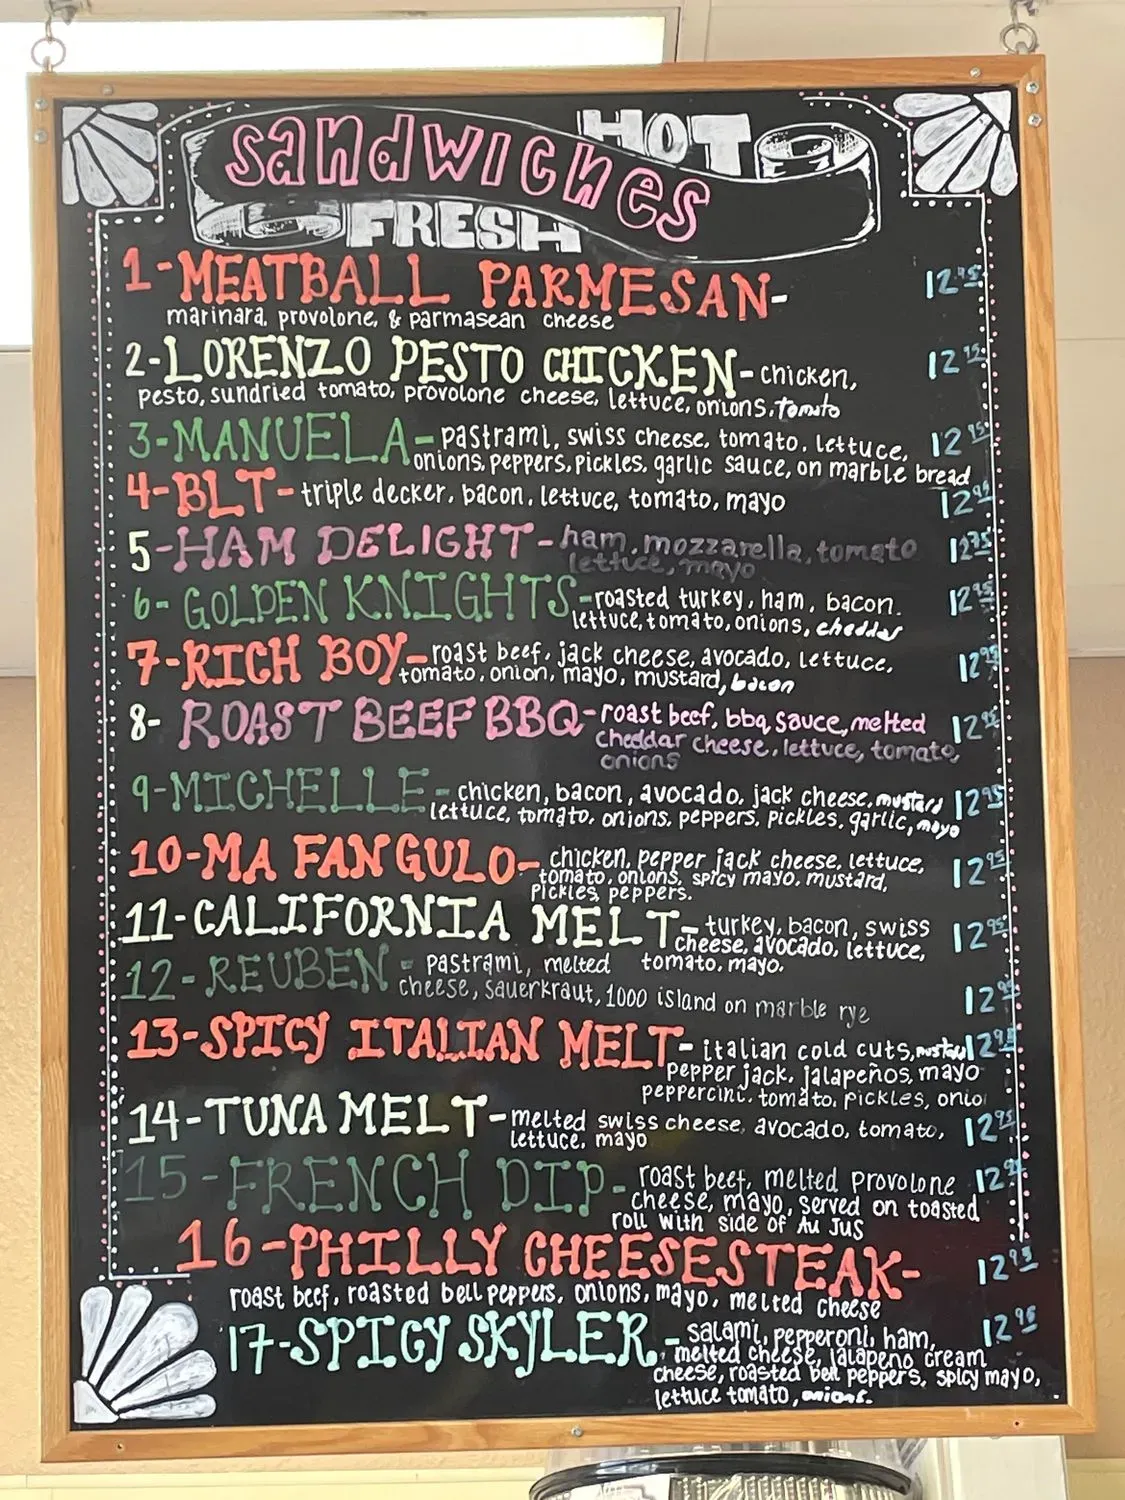 HOT
sandwiches
FRESH
1-MEATBALL PARMESAN- 12.95
marinara, provolone, & parmasean cheese
2-LORENZO PESTO CHICKEN-chicken, 12.95
pesto, sundried tomato, provolone cheese, lettuce, onions, Tomato
3-MANUELA-pastrami, swiss cheese, tomato, lettuce, 12.95
onions, peppers, pickles, garlic sauce, on marble bread
4-BLT-triple decker, bacon, lettuce, tomato, mayo 12.95
5-HAM DELIGHT-ham, mozzarella, tomato 12.75
lettuce, mayo
6- GOLDEN KNIGHTS-roasted turkey, ham, bacon. 12.95
lettuce, tomato, onions, cheddar
7-RICH BOY-roast beef, jack cheese, avocado, lettuce, 12.95
tomato, onion, mayo, mustard, bacon
8- ROAST BEEF BBQ-roast beef, bbq sauce, melted 12.95
cheddar cheese, lettuce, tomato,
onions
9-MICHELLE-chicken, bacon, avocado, jack cheese, mustard 12.95
lettuce, tomato, onions, peppers, pickles, garlic, mayo
10-MA FANGULO-chicken, pepper jack cheese, lettuce, 12.95
tomato, onions, spicy mayo, mustard,
Pickles, peppers.
11-CALIFORNIA MELT-turkey, bacon, swiss 12.95
cheese, avocado, lettuce,
tomato, mayo.
12-REUBEN - pastrami, melted
cheese, sauerkraut, 1000 island on marble rye 12.95
13-SPICY ITALIAN MELT-italian cold cuts, mustard 12.95
pepper jack, jalapeños, mayo
peppercini, tomato, pickles, onio
14-TUNA MELT-melted swiss cheese, avocado, tomato, 12.95
lettuce, mayo
15-FRENCH DIP-roast beef, melted provolone 12.95
cheese, mayo, served on toasted
roll with side of Au Jus
16-PHILLY CHEESESTEAK- 12.95
roast beef, roasted bell peppers, onions, mayo, melted cheese
17-SPICY SKYLER-salami, pepperoni, ham, 12.95
melted cheese, jalapeno cream
cheese, roasted bell peppers, spicy mayo,
lettuce tomato, onions.